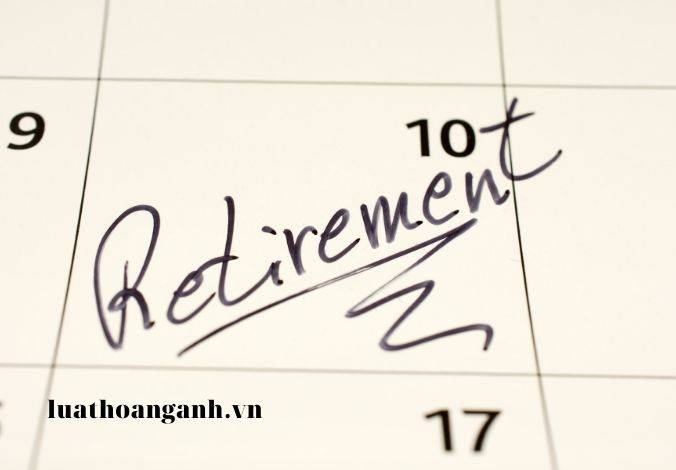 9
10
Retirement
luathoanganh.vn
17